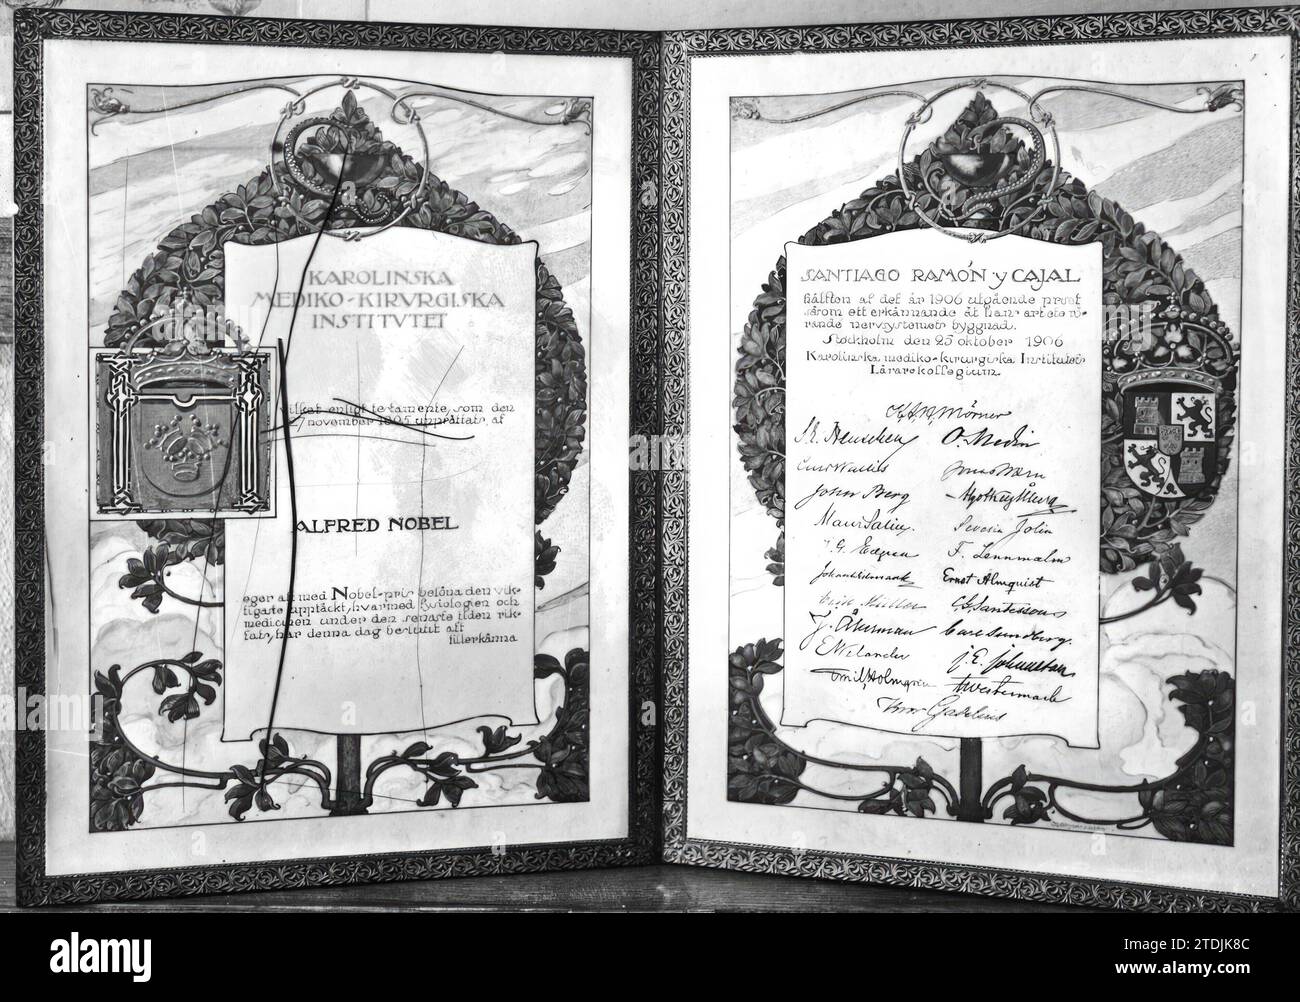 KAROLINSKA
MEDIKO-KIRVRGISKA
INSTITVTET
vilket enligt testamente, som den
27 november 1895 upprättats af
ALFRED NOBEL
eger att med Nobel-pris belöna den vik-
tigaste upptäckt, hvarmed fysiologien och
medicinen under den senaste tiden rik-
tats, har denna dag beslutit att
tillerkänna
SANTIAGO RAMÓN y CAJAL
hälften af det år 1906 utgående priset
såsom ett erkännande åt hans arbete rö-
rande nervsystemets byggnad.
Stockholm den 25 oktober 1906
Karolinska mediko-kirurgiska Institutets
Lärarekollegium.
K.A.H. Mörner
S.E. Henschen O. Medin
Curt Wallis
John Berg
Severin Jolin
J.G. Edgren F. Lennmalm
Ernst Almquist
Erik Müller C.G. Santesson
J. Åkerman Carl Sundberg.
E. Welander J.E. Johansson
Emil Holmgren A. Westermark
Gadelius
alamy
alamy
a
a
a
a
alamy
Image ID: 2TDJK8C
www.alamy.com